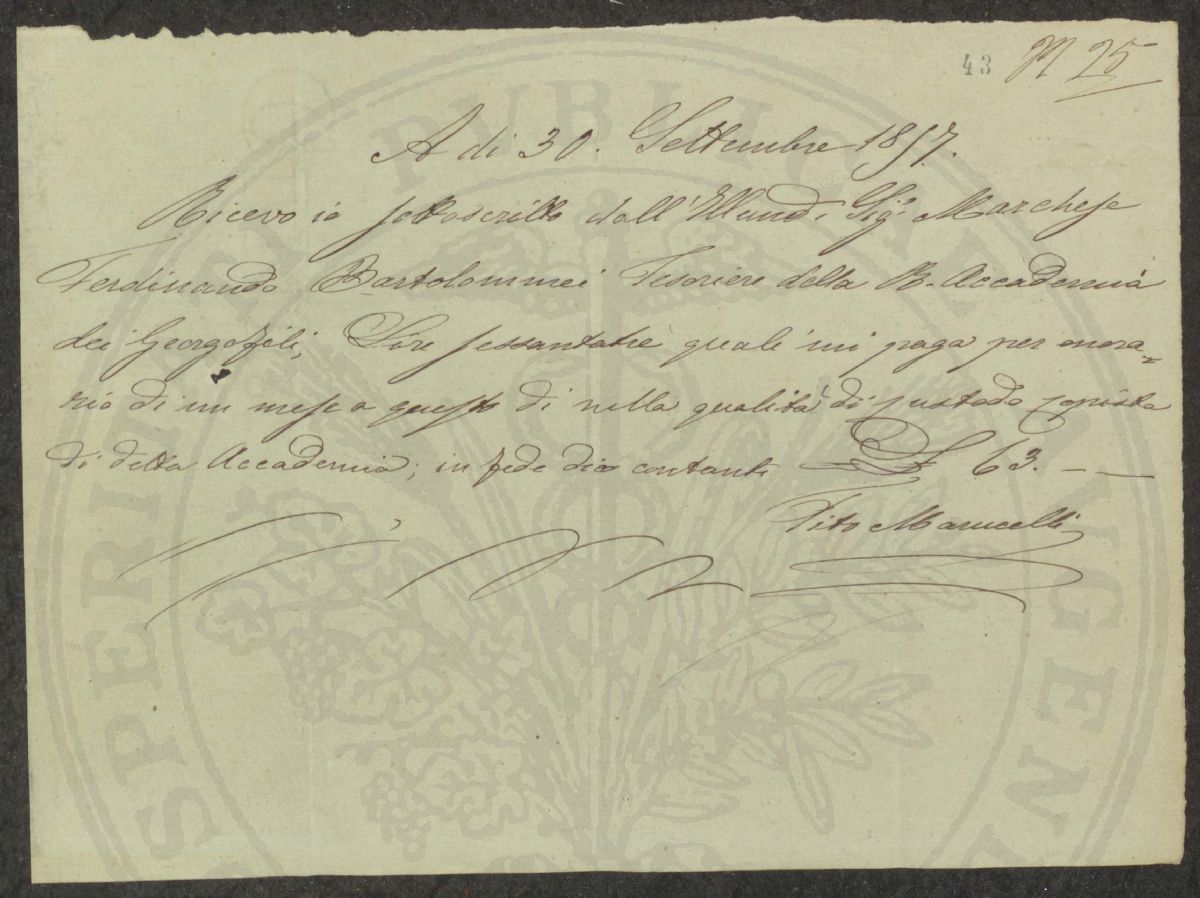 43 N 25
A dì 30. Settembre 1857.
Ricevo io sottoscritto dall' Sig. Marchese
Ferdinando Bartolommei Tesoriere della R. Accademia
dei Georgofili, Lire sessantatre quali mi paga per onora=
rio di un mese a questo dì nella qualità di custode copista
di detta Accademia; in fede dico contanti £ 63. — —
Tito Marucelli
PUBLICAE
PROSPERITATI AUGENDAE